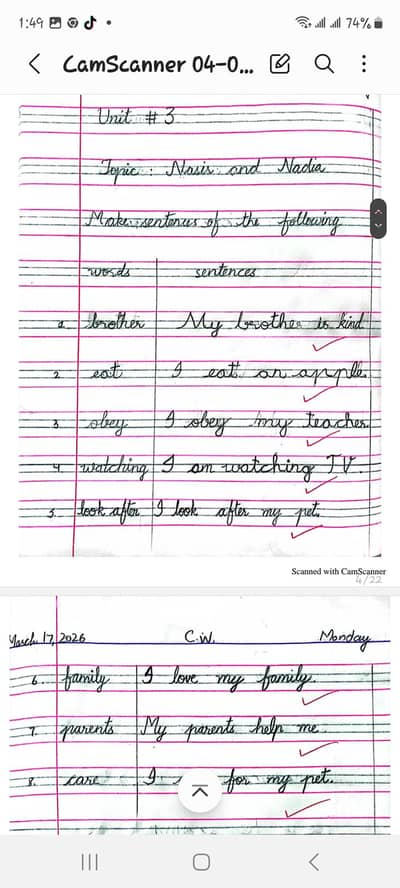 1:49 74%
CamScanner 04-0...
Unit # 3
Topic : Nasir and Nadia
Make sentences of the following
words sentences
brother My brother is kind
2. eat I eat an apple.
3 obey I obey my teacher
4. watching I am watching TV.
5. look after I look after my pet.
Scanned with CamScanner
4/22
March 17, 2026 C.W. Monday
6. family I love my family.
7. parents My parents help me.
8. care I for my pet.